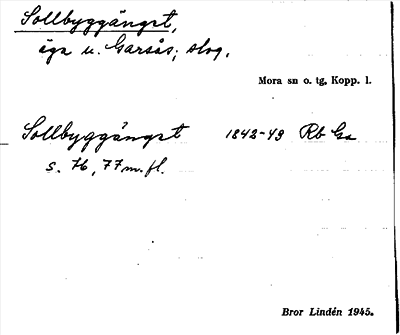 Sollbyggänget,
äga u. Garsås; skog.
Mora sn o. tg, Kopp. l.
Sollbyggänget 1842-43 Rb Ga
s. 76, 77 m. fl.
Bror Lindén 1945.